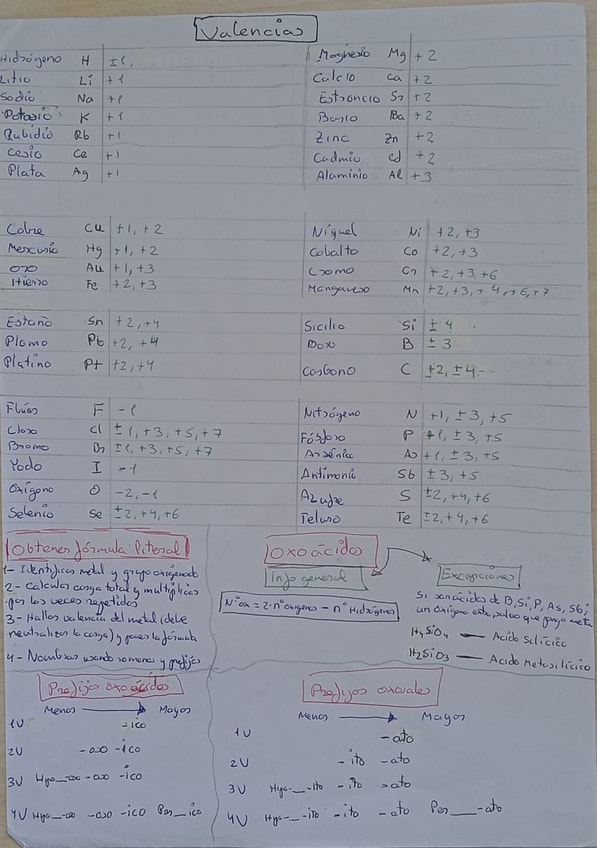 Valencias
Hidrógeno H ±1,
Litio Li +1
Sodio Na +1
Potasio K +1
Rubidio Rb +1
Cesio Ce +1
Plata Ag +1
Magnesio Mg +2
Calcio Ca +2
Estroncio Sr +2
Bario Ba +2
Zinc Zn +2
Cadmio Cd +2
Aluminio Al +3
Cobre Cu +1, +2
Mercurio Hg +1, +2
Oro Au +1, +3
Hierro Fe +2, +3
Niquel Ni +2, +3
Cobalto Co +2, +3
Cromo Cr +2, +3, +6
Manganeso Mn +2, +3, +4, +6, +7
Estaño Sn +2, +4
Plomo Pb +2, +4
Platino Pt +2, +4
Sicilio Si ±4
Boro B ±3
Carbono C ±2, ±4
Flúor F -1
Cloro Cl ±1, +3, +5, +7
Bromo Br ±1, +3, +5, +7
Yodo I -1
Oxígeno O -2, -1
Selenio Se ±2, +4, +6
Nitrógeno N +1, ±3, +5
Fósforo P +1, ±3, +5
Arsénico As +1, ±3, +5
Antimonio Sb ±3, +5
Azufre S ±2, +4, +6
Teluro Te ±2, +4, +6
Obtener fórmula literal
1- Identificar metal y grupo oxigenado
2- Calcular carga total y multiplicar
por las veces repetidos
3- Hallar valencia del metal (debe
neutralizar la carga) y poner la fórmula
4- Nombrar usando romanos y prefijos
Oxoácidos
Info general
NºOx = 2·nºoxígenos - nº Hidrógenos
Excepciones
Si son ácidos de B, Si, P, As, Sb,
un oxígeno extra, salvo que ponga meta
H4SiO4 — Acido Silícico
H2SiO3 — Acido Metasilícico
Prefijos oxoácidos
Menor → Mayor
1V -ico
2V -oso -ico
3V Hipo__-oso -oso -ico
4V Hipo__-oso -oso -ico Per__ico
Prefijos oxosales
Menor → Mayor
1V -ato
2V -ito -ato
3V Hipo-__-ito -ito -ato
4V Hipo-__-ito -ito -ato Per___-ato